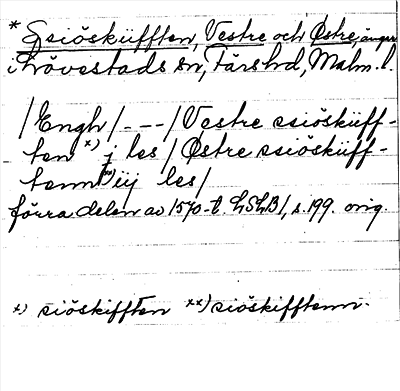 * Ssiöskiifften, Vestre och Østre, ängar
i Lövestads sn, Färs hd, Malm. l.
/Engh/ - - - /Vestre ssiöskiiff-
ten *) j les/ Østre ssiöskiiff-
tenn **) iij les/
förra delen av 1570-t. LSLB1, s. 199. orig.
*) siöskifften **) siöskifftenn.